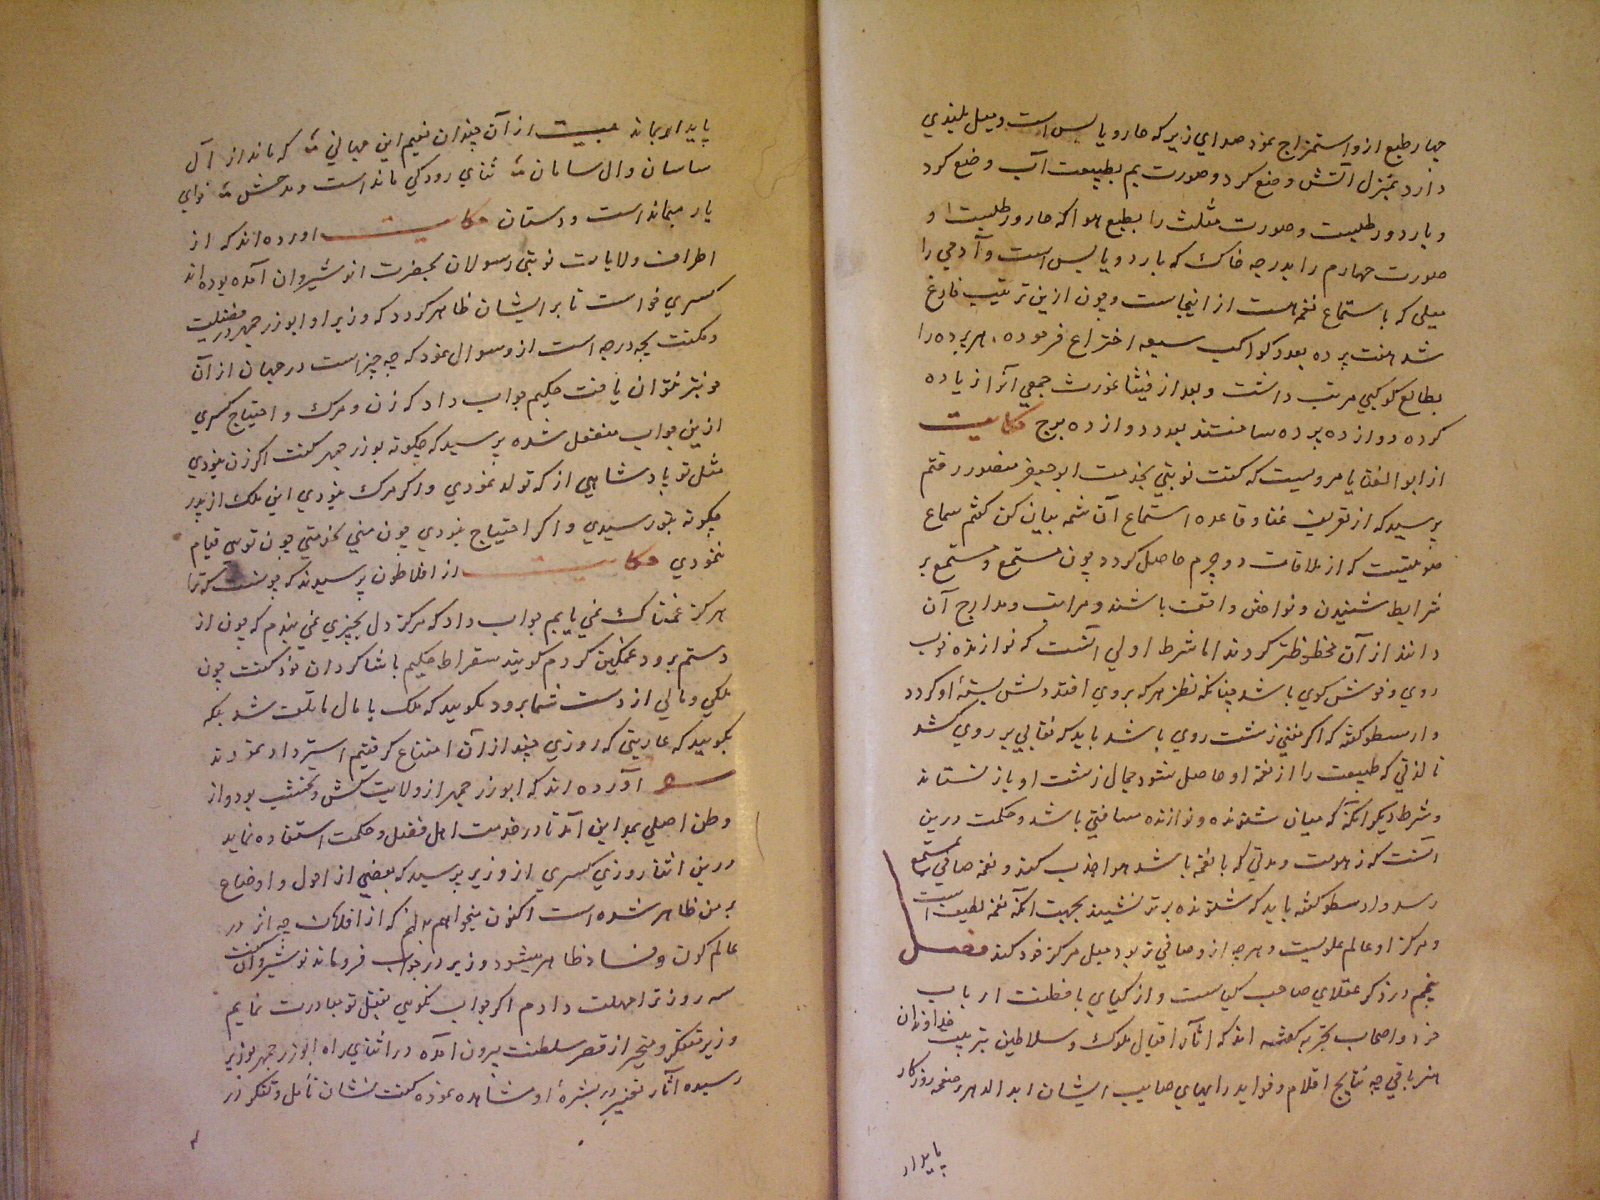 چهار طبع ازو استمزاج نمود صدای زیر که حار و یابس است و میل بلندی
دارد بمنزل آتش وضع کرد و صورت بم بطبیعت آب وضع کرد
و بارد و رطبست و صورت مثلث را بطبع هوا که حار و رطبست و
صورت چهارم را بدرجه خاک که بارد و یابس است و آدمی را
میلی که باستماع نغمه است از اینجاست و چون ازین ترتیب فارغ
شد هفت پرده بعدد کواکب سبعه اختراع فرموده، هر پرده را
بطالع کوکبی مرتب داشت و بعد از فیثاغورث جمعی آنرا زیاده
کرده دوازده پرده ساختند بعدد دوازده برج حکایت
از ابو الفتح مرویست که گفت نوبتی بخدمت ابو جعفر منصور رفتم
پرسید که از تعریف غنا و قاعده استماع آن شمه بیان کن گفتم سماع
که از ملاقات دو جرم حاصل کردد چون مستمع و مستمع بر
شرایط شنیدن و نواختن واقف باشند و مراتب و مدارج آن
دانند از آن محظوظ کردند اما شرط اولی آنست که نوازنده خوب
روی و خوش کوی باشد چنانکه نظر هر که بروی افتد دلش بسته او کردد
و ارسطو گفته که اکر مغنی زشت روی باشد باید که نقابی بر روی کشد
تا لذتی که طبیعت را از نغمه او حاصل شود جمال زشت او باز نستاند
و شرط دیکر آنکه میان شنونده و نوازنده مسافتی باشد و حکمت درین
آنست که زهومت و مدتی که با نغمه باشد هوا جذب کند و نغمه صافی بمستمع
رسد و ارسطو گفته باید که شنونده برتر نشیند بجهت آنکه نغمه لطیف است
و مرکز او عالم علویست و هر چه ازو صافی تر بود میل مرکز خود کند فصل
پنجم در ذکر عقلای صاحب کیاست و ازکیای با فطنت ارباب
خرد و اصحاب تجربه گفته اند که آثار اقبال ملوک و سلاطین بتربیت خداوندان
هنر باقی چه نتایج اقلام و فواید رایهای صایب ایشان ابد الدهر بر صفحه روزکار
پایدار
پایدار بماند بیت از آن چندان نعیم این جهانی که ماند از آل
ساسان و آل سامان ثنای رودکی مانداست و مدحش نوای
باربد ماندست و دستان حکایت آورده اند که از
اطراف ولایات نوبتی رسولان بحضرت انوشیروان آمده بوده اند
کسری خواست تا بر ایشان ظاهر کردد که وزیر او ابوزرجمهر در فضیلت
و حکمت بچه درجه است ازو سوال نمود که چه چیز است در جهان از آن
خوبتر نتوان یافت حکیم جواب داد که زن و مرک و احتیاج کسری
ازین جواب منفعل شده پرسید که چکونه بوزرجمهر گفت اکر زن نبودی
مثل تو پادشاهی از که تولد نمودی و اکر مرک نبودی این ملک از پدر
چکونه بتو رسیدی و اکر احتیاج نبودی چون منی بخدمتی چون تویی قیام
ننمودی حکایت از افلاطون پرسیدند که چونست که ترا
هرکز غمناک نمی یابیم جواب داد که هرکز دل بچیزی نمی بندم که چون از
دستم برود غمگین کردم گویند سقراط حکیم با شاکردان خود گفت چون
ملکی و مالی از دست شما برود مگویید که ملک یا مال ما تلف شد بلکه
بگویید که عاریتی که روزی چند از آن امتناع کرفتیم استرداد نمودند
آورده اند که ابوزرجمهر از ولایت کش و نخشب بود و از
وطن اصلی بمداین آمد تا در خدمت اهل فضل و حکمت استفاده نماید
درین اثنا روزی کسری از وزیر پرسید که بعضی از احوال و اوضاع
بر من ظاهر شده است اکنون میخواهم بدانم که از افلاک چه اثر در
عالم کون و فساد ظاهر میشود وزیر در جواب فرو ماند نوشیروان گفت
سه روز ترا مهلت دادم اکر جواب نگویی بقتل تو مبادرت نمایم
وزیر متفکر و متحیر از قصر سلطنت بیرون آمده در اثنای راه ابوزرجمهر بوزیر
رسیده آثار تغییر در بشره او مشاهده نموده گفت نشان تأمل و تفکر در